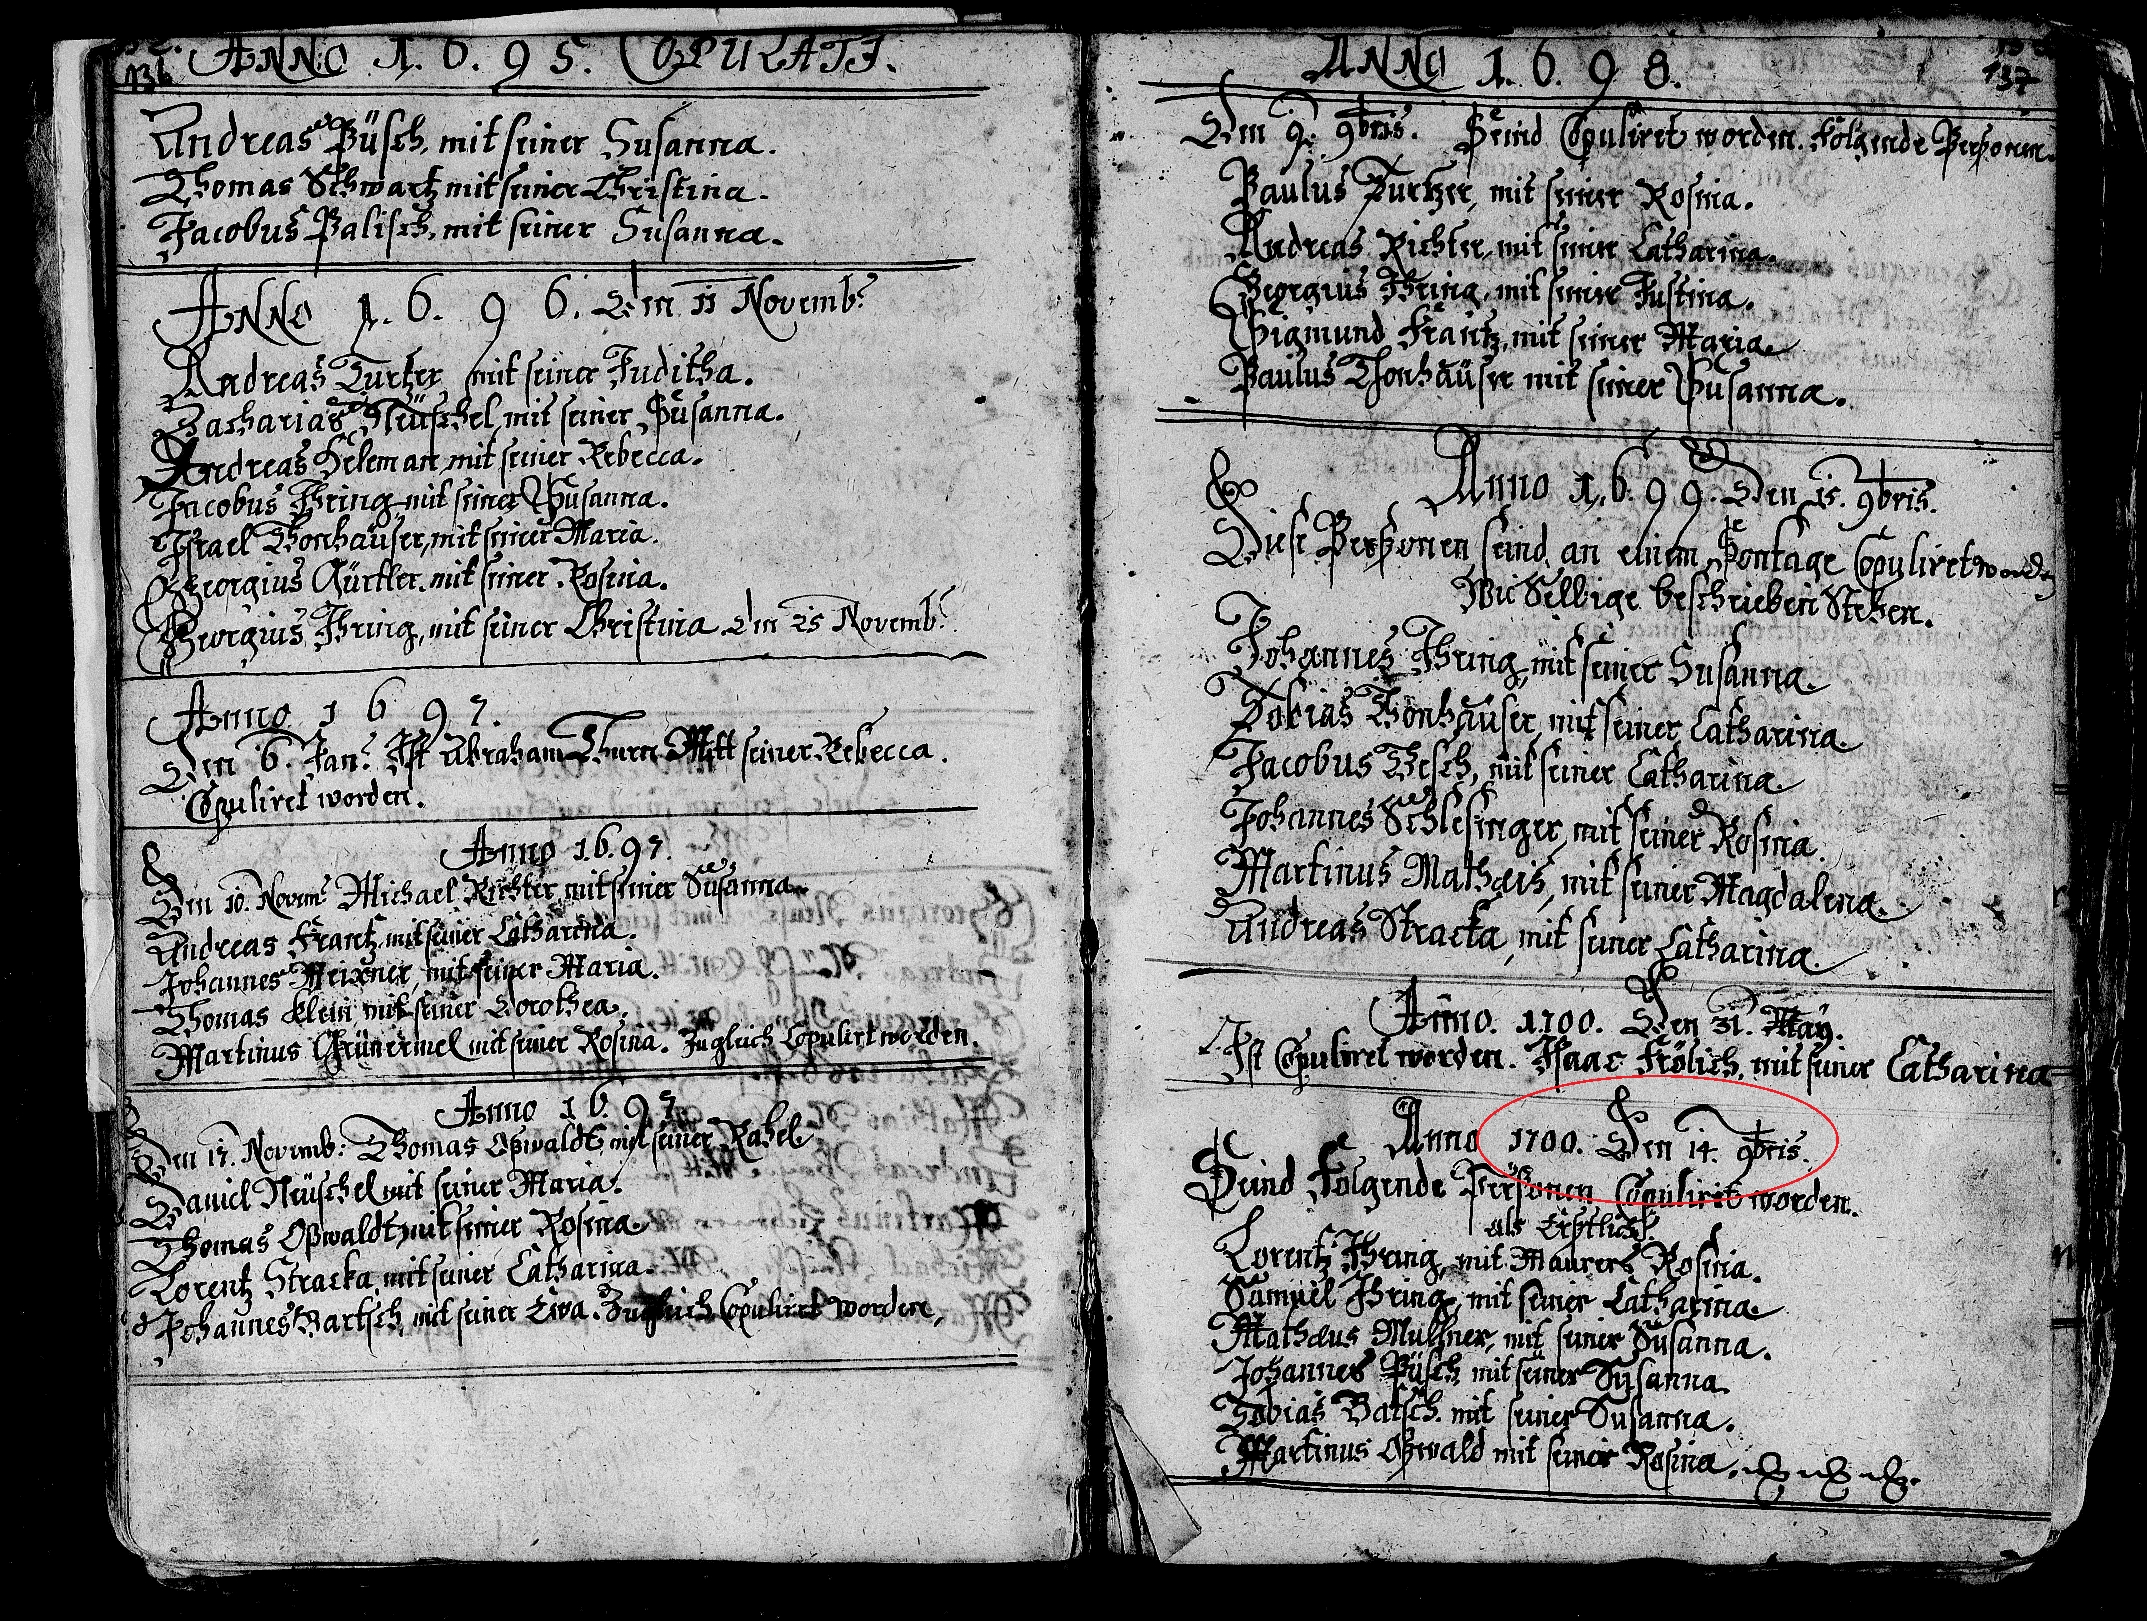 136
ANNO 1. 6. 9 5. COPULATI.
Andreas Püsch, mit seiner Susanna.
Thomas Schwartz mit seiner Christina.
Jacobus Palisch, mit seiner Susanna.
ANNO 1. 6. 9 6. Den 11 Novemb:
Andreas Turtzer mit seiner Juditha.
Zacharias Neüschel, mit seiner Susanna.
Andreas Heleman, mit seiner Rebecca.
Jacobus Ihring, mit seiner Susanna.
Israel Thonhäuser, mit seiner Maria.
Georgius Gürtler. mit seiner Rosina.
Georgius Ihring, mit seiner Christina Den 25 Novemb:
Anno 1 6 9 7.
Den 6. Jan: Ist Abraham Thurn Mitt seiner Rebecca.
Copuliret worden.
Anno 1.6.97.
Den 10. Novem: Michael Richter, mit seiner Susanna.
Andreas Frantz, mit seiner Catharina.
Johannes Meixner, mit seiner Maria.
Thomas Klein mit seiner Dorothea.
Martinus Grünermel mit seiner Rosina. Zugleich Copulirt worden.
Anno 1 6. 9 7.
Den 17. Novemb: Thomas Oßwaldt, mit seiner Rahel
Daniel Neüschel mit seiner Maria.
Thomas Oßwaldt, mit seiner Rosina.
Lorentz Stracka, mit seiner Catharina.
Johannes Bartsch, mit seiner Ewa. Zugleich Copulirt worden.
137
ANNO 1. 6. 9 8.
Den 9. 9bris. Seind Copuliret worden. Folgende Personen.
Paulus Turtzer, mit seiner Rosina.
Andreas Richter, mit seiner Catharina.
Georgius Ihring, mit seiner Justina.
Sigmund Frantz, mit seiner Maria.
Paulus Thonhäuser mit seiner Susanna.
Anno 1. 6. 9 9. Den 15. 9bris.
Diese Personen seind an einem Sontage Copuliret worden
Wie Selbige beschrieben Stehen.
Johannes Ihring, mit seiner Susanna.
Tobias Thonhäuser, mit seiner Catharina.
Jacobus Thesch, mit seiner Catharina
Johannes Schlesinger, mit seiner Rosina.
Martinus Mathæis, mit seiner Magdalena.
Andreas Stracka, mit seiner Catharina.
Anno. 1700. Den 31. Maÿ.
Ist Copuliret worden. Isaac Frölich, mit seiner Catharina
Anno 1700. Den 14. 9bris.
Seind Folgende Personen Copuliret worden.
als Erstlich.
Lorentz Ihring, mit Maurers Rosina.
Samuel Ihring, mit seiner Catharina.
Mathæus Mulhner, mit seiner Susanna.
Johannes Püsch mit seiner Susanna
Tobias Batsch. mit seiner Susanna.
Martinus Oßwald mit seiner Rosina.